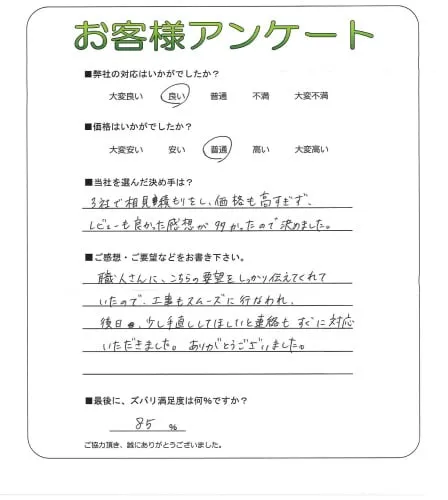 お客様アンケート
■弊社の対応はいかがでしたか？
大変良い 良い 普通 不満 大変不満
■価格はいかがでしたか？
大変安い 安い 普通 高い 大変高い
■当社を選んだ決め手は？
3社で相見積もりをし、価格も高すぎず、
レビューも良かった感想が多かったので決めました。
■ご感想・ご要望などをお書き下さい。
職人さんに、こちらの要望をしっかり伝えてくれて
いたので、工事もスムーズに行なわれ、
後日、少し手直ししてほしいと連絡も すぐに対応
いただきました。ありがとうございました。
■最後に、ズバリ満足度は何％ですか？
85 %
ご協力頂き、誠にありがとうございました。